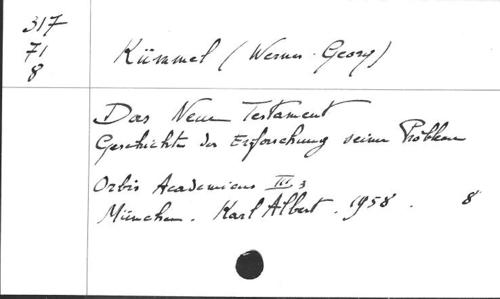 317
71
8
Kümmel (Werner-Georg)
Das Neue Testament
Geschichte der Erforschung seiner Probleme
Orbis Academicus III, 3
München. Karl Albert. 1958. 8